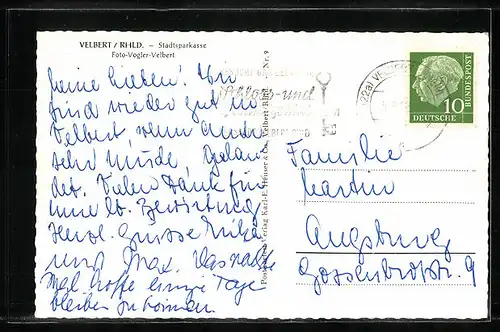 VELBERT / RHLD. – Stadtsparkasse
Foto-Vogler-Velbert
Meine Lieben! Wir
sind wieder gut in
Velbert wenn auch
sehr müde. Gelan
det. Vielen Dank für
eure lb. Bewirtung
Herzl. Grüsse
und Max. Das nächste
Mal hoffe einige Tage
bleiben zu können.
Schloss- und
Nr. 9
(22a) VELBERT
10
DEUTSCHE
BUNDESPOST
Familie
Martin
Augsburg
Gossenbrotstr. 9